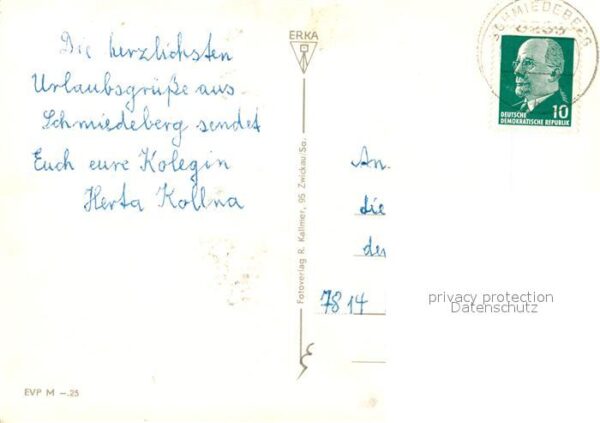 Die herzlichsten
Urlaubsgrüße aus
Schmiedeberg sendet
Euch eure Kolegin
Herta Kollna
EVP M –.25
ERKA
Fotoverlag R. Kallmer, 95 Zwickau/Sa.
SCHMIEDEBERG
10
DEUTSCHE
DEMOKRATISCHE REPUBLIK
An
die
der
7814
privacy protection
Datenschutz